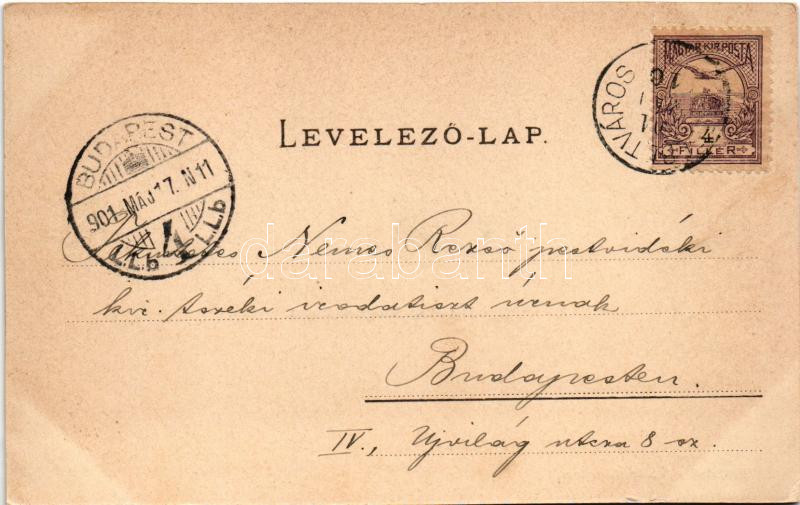 MAGYAR KIR. POSTA
4
FILLÉR
TVÁROS
BUDAPEST
901 MÁJ 17. N 11
I.L.b 4 I.L.b
LEVELEZŐ-LAP.
Nemes Rezső pestvidéki
kir. irodatiszt úrnak
Budapesten.
IV., Ujvilág utcza 8 sz.
darabanth